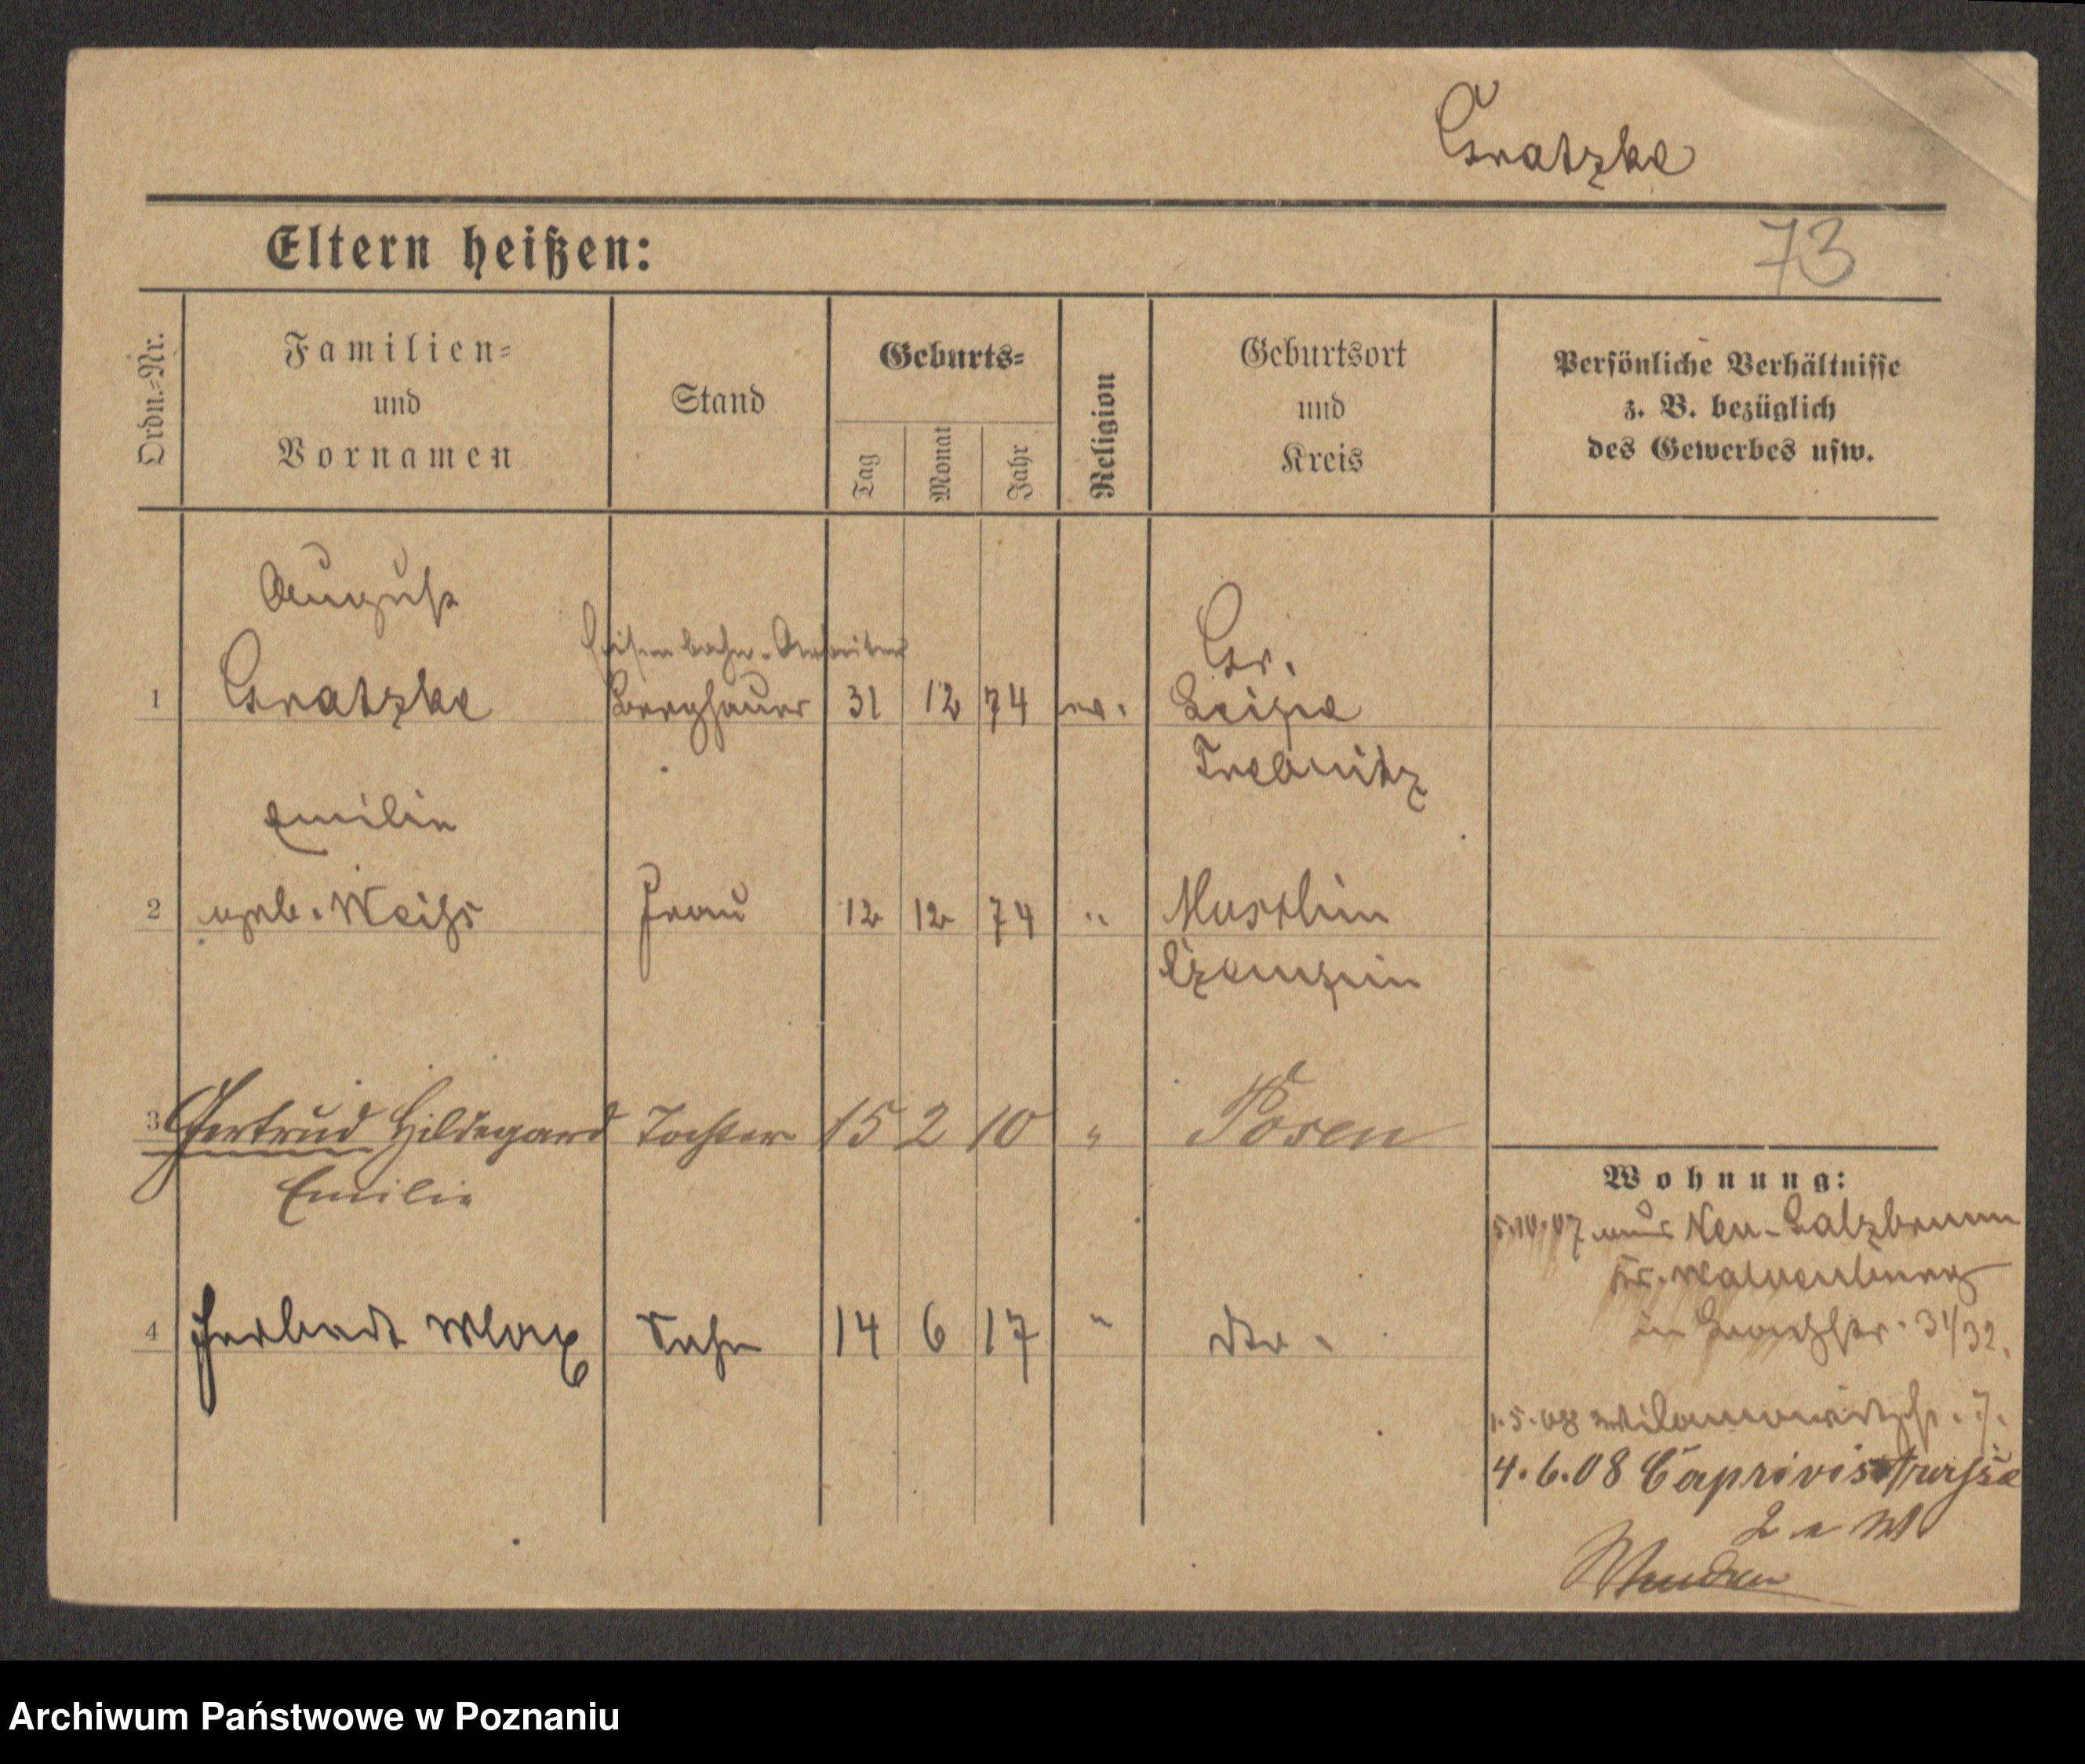 Gratzke
Eltern heißen:
73
Ordn.=Nr.
Familien=
und
Vornamen
Stand
Geburts=
Tag
Monat
Jahr
Religion
Geburtsort
und
Kreis
Persönliche Verhältnisse
z. B. bezüglich
des Gewerbes usw.
August
Eisenbahn-Arbeiter
Gr.
1 Gratzke Berghauer 31 12 74 ev. Leipe
Trebnitz
Emilie
2 geb. Weihs Frau 12 12 74 " 
3 Gertrud Hildegard Tochter 15 2 10 " Posen
Emilie
4 Max Sohn 14 6 17 " dto.
Wohnung:
5.10.07 aus Neu-Salzbrunn
Kr. Waldenburg
in 31/32.
1.5.08 7.
4.6.08 Caprivistrasse
2